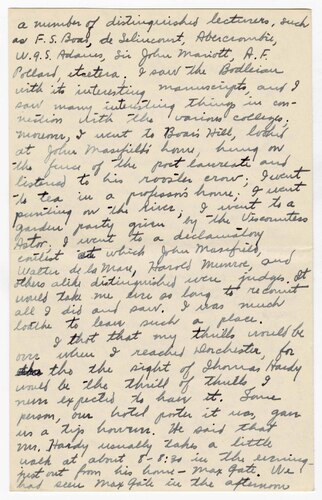 a number of distinguished lecturers, such
as F.S. Boas, de Selincourt, Abercrombie,
W.G.S. Adams, Sir John Mariott, A.F.
Pollard, etcetera. I saw the Bodleian
with its interesting manuscripts, and I
saw many interesting things in con-
nection with the various colleges.
Moreover, I went to Boar's Hill, looked
at John Masefield's home, hung on
the fence of the poet laureate and
listened to his rooster crow; I went
to tea in a professor's home; I went
punting on the river; I went to a
garden party given by the Viscountess
Astor. I went to a declamatory
contest at which John Masefield,
Walter de la Mare, Harold Munroe, and
others alike distinguished were judges. It
would take me ere so long to recount
all I did and saw. I was much
lothe to leave such a place.
I that that my thrills would be
over when I reached Dorchester, for
tho the sight of Thomas Hardy
would be the thrill of thrills, I
never expected to have it. Some
person, our hotel porter it was, gave
us a tip however. He said that
Mr. Hardy usually takes a little
walk at about 8-8:30 in the evening-
just out from his home - Max Gate. We
had seen Max Gate in the afternoon